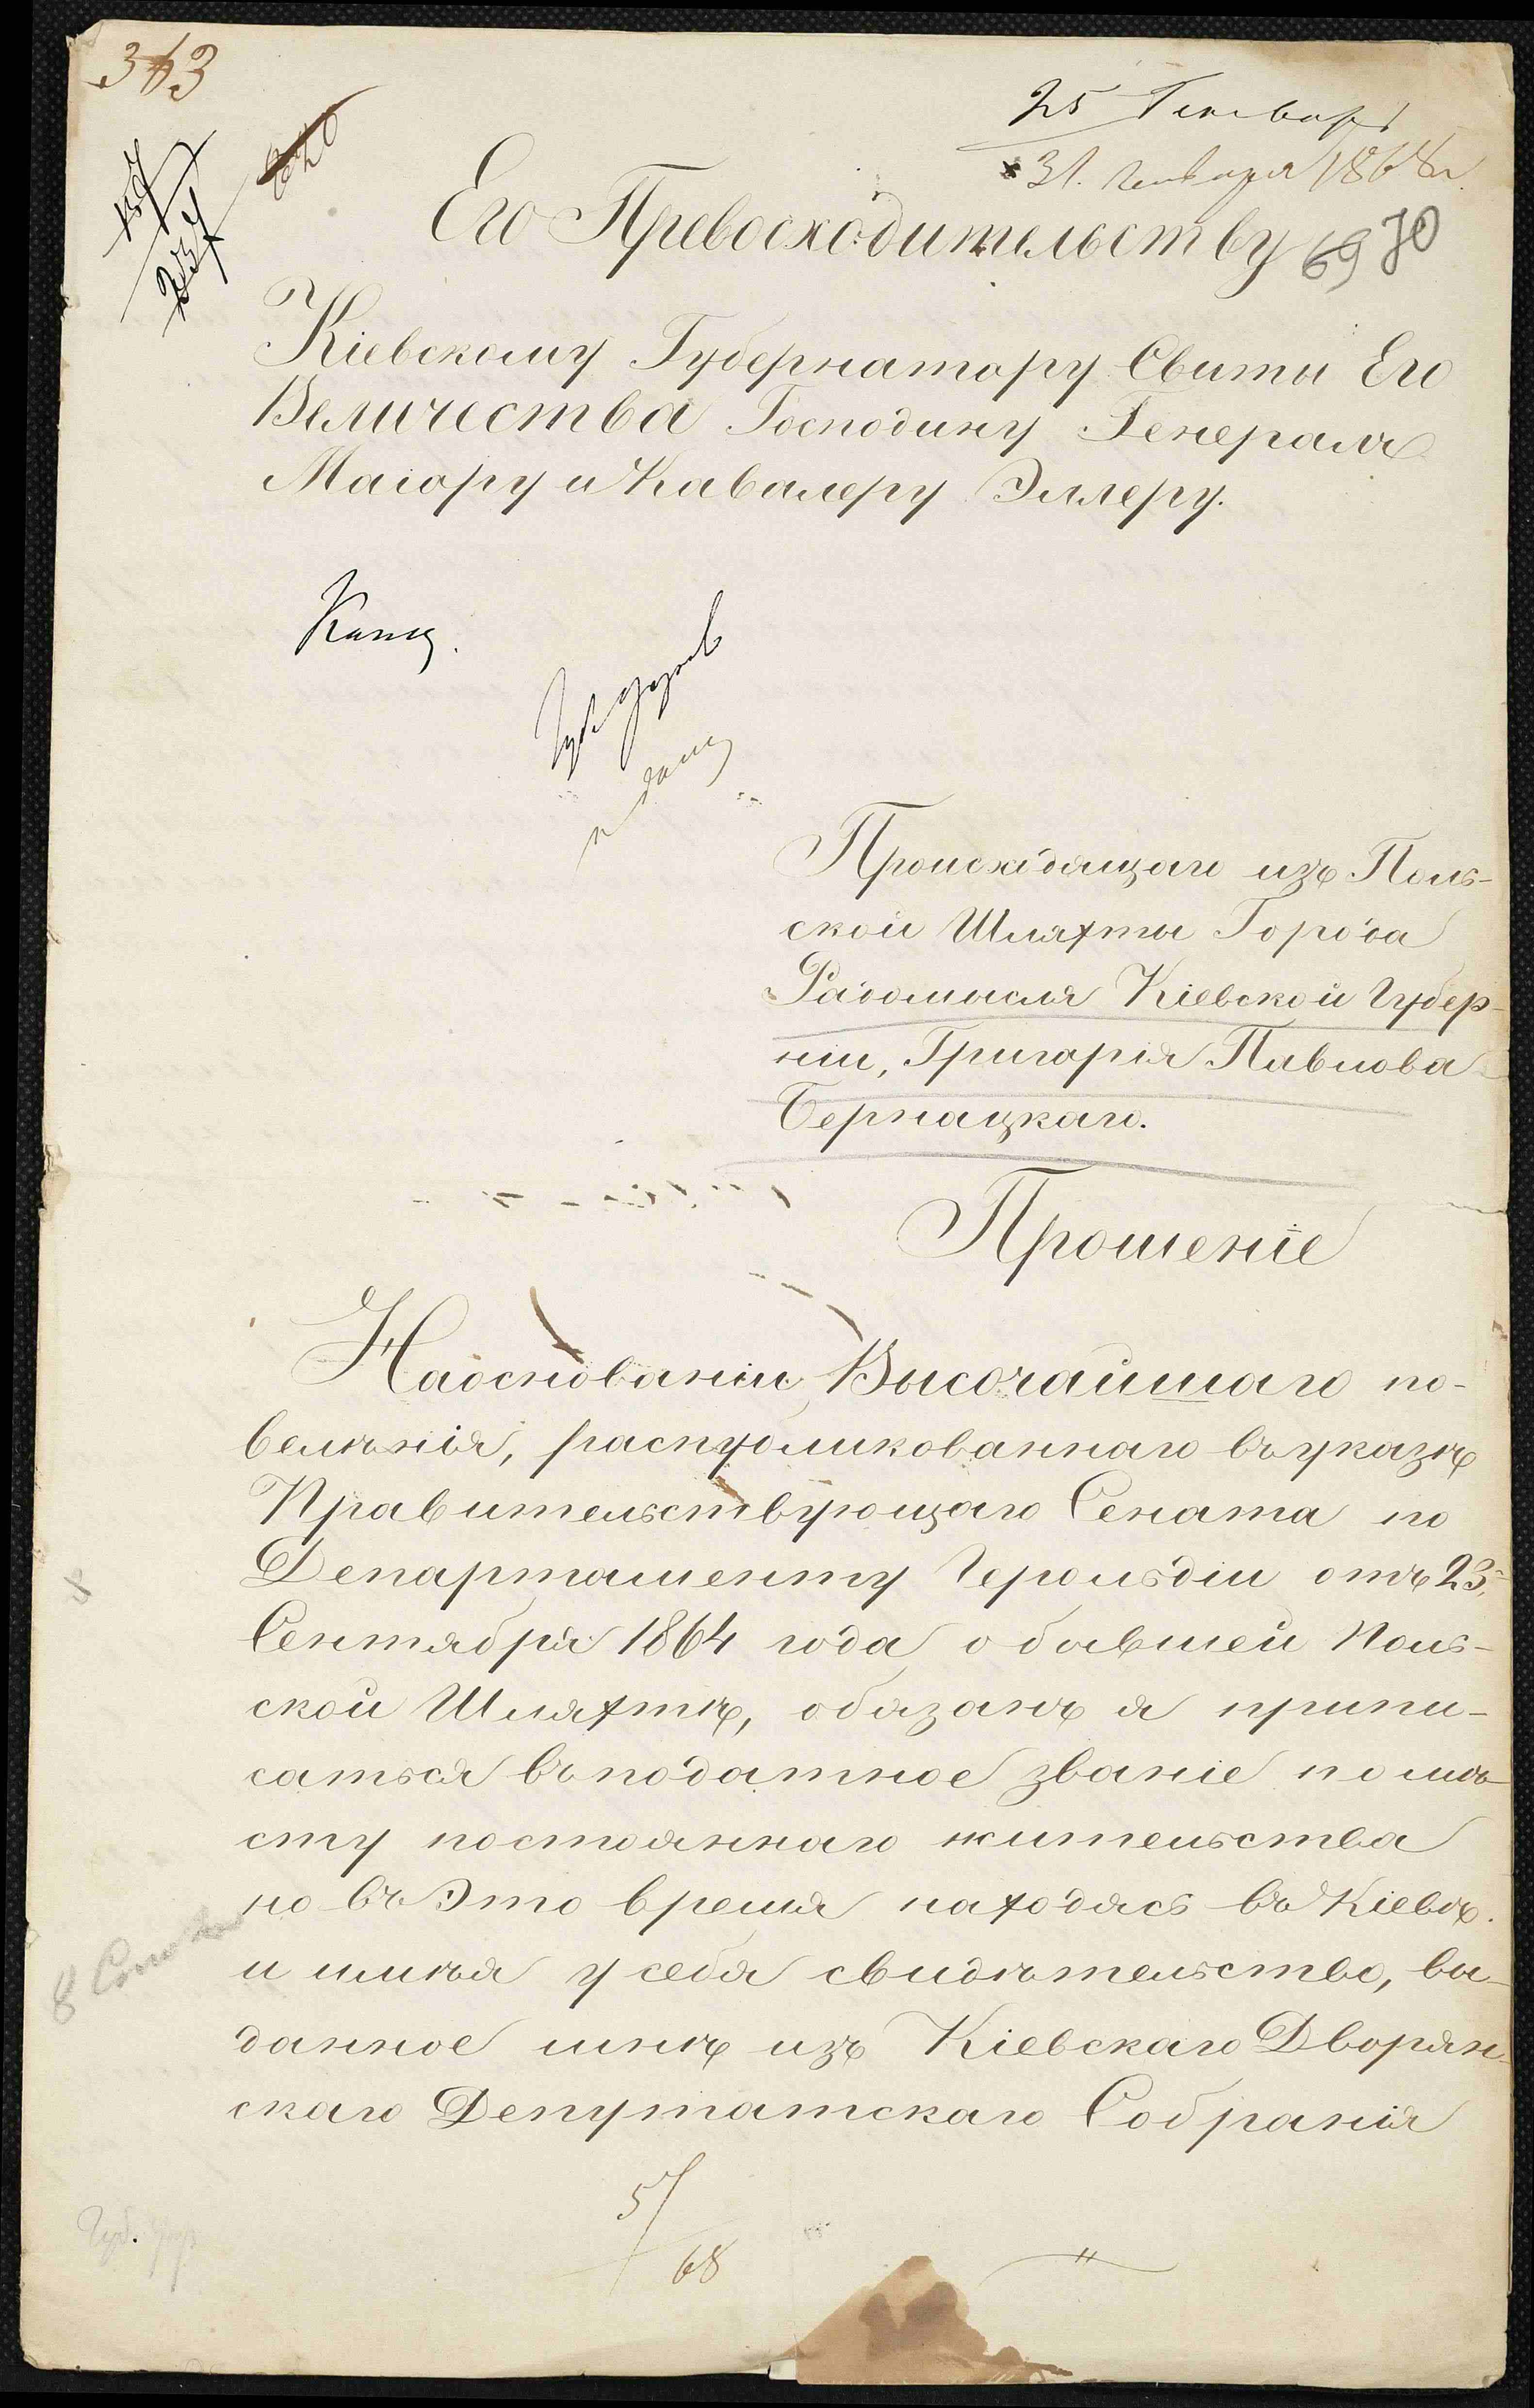 343
25 Генваря
31. Генваря 1868 г.
Его Превосходительству
69 70
Кіевскому Губернатору Свиты Его
Величества Господину Генералъ
Маіору и Кавалеру Эллеру.
Происходящаго изъ Поль-
ской Шляхты Города
Радомысля Кіевской Губер-
ніи, Григорія Павлова
Бернацкаго.
Прошеніе
На основаніи Высочайшаго по-
велѣнія, распубликованнаго въ указѣ
Правительствующаго Сената по
Департаменту Герольдіи отъ 23
Сентября 1864 года о бывшей Поль-
ской Шляхтѣ, обязанъ я припи-
саться въ податное званіе по мѣ-
сту постояннаго жительства
но въ Это время находясь въ Кіевѣ.
и имѣя у себя свидѣтельство, вы-
данное мнѣ изъ Кіевскаго Дворян-
скаго Депутатскаго Собранія
5/68